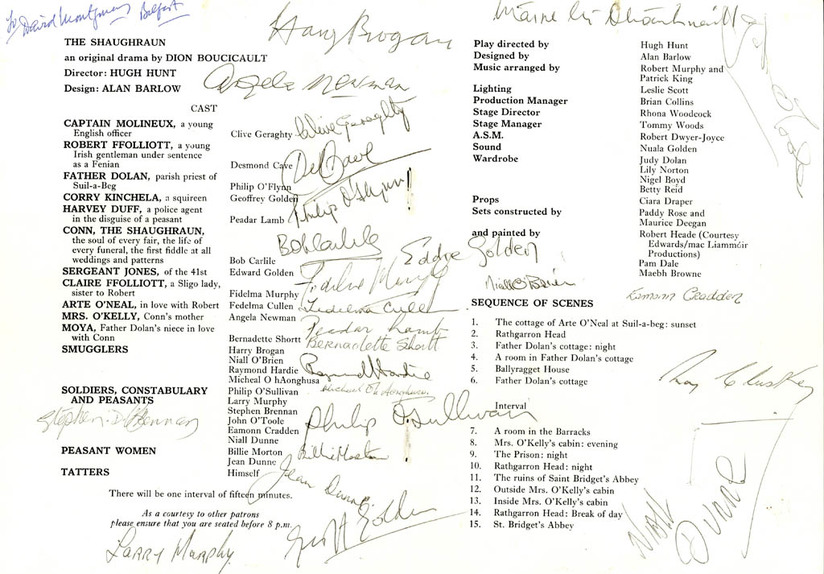 To David Montgomery Belfast
THE SHAUGHRAUN
an original drama by DION BOUCICAULT
Director: HUGH HUNT
Design: ALAN BARLOW
Harry Brogan
Angela Newman
CAST
CAPTAIN MOLINEUX, a young
English officer
Clive Geraghty
Clive Geraghty
ROBERT FFOLLIOTT, a young
Irish gentleman under sentence
as a Fenian
Desmond Cave
Des Cave
FATHER DOLAN, parish priest of
Suil-a-Beg
Philip O'Flynn
Philip O'Flynn
CORRY KINCHELA, a squireen
Geoffrey Golden
HARVEY DUFF, a police agent
in the disguise of a peasant
Peadar Lamb
CONN, THE SHAUGHRAUN,
the soul of every fair, the life of
every funeral, the first fiddle at all
weddings and patterns
Bob Carlile
Bob Carlile
SERGEANT JONES, of the 41st
Edward Golden
Eddie Golden
CLAIRE FFOLLIOTT, a Sligo lady,
sister to Robert
Fidelma Murphy
Fidelma Murphy
ARTE O'NEAL, in love with Robert
Fedelma Cullen
Fedelma Cullen
MRS. O'KELLY, Conn's mother
Angela Newman
Peadar Lamb
MOYA, Father Dolan's niece in love
with Conn
Bernadette Shortt
Bernadette Shortt
SMUGGLERS
Harry Brogan
Niall O'Brien
Raymond Hardie
Raymond Hardie
Micheal O hAonghusa
SOLDIERS, CONSTABULARY
AND PEASANTS
Philip O'Sullivan
Larry Murphy
Stephen Brennan
John O'Toole
Eamonn Cradden
Niall Dunne
Stephen D. Brennan
Philip O'Sullivan
PEASANT WOMEN
Billie Morton
Jean Dunne
Billie Morton
Jean Dunne
TATTERS
Himself
There will be one interval of fifteen minutes.
As a courtesy to other patrons
please ensure that you are seated before 8 p.m.
Larry Murphy
Geoff Golden
Play directed by
Hugh Hunt
Designed by
Alan Barlow
Music arranged by
Robert Murphy and
Patrick King
Lighting
Leslie Scott
Production Manager
Brian Collins
Stage Director
Rhona Woodcock
Stage Manager
Tommy Woods
A.S.M.
Robert Dwyer-Joyce
Sound
Nuala Golden
Wardrobe
Judy Dolan
Lily Norton
Nigel Boyd
Betty Reid
Props
Ciara Draper
Sets constructed by
Paddy Rose and
Maurice Deegan
and painted by
Robert Heade (Courtesy
Edwards/mac Liammóir
Productions)
Pam Dale
Maebh Browne
Niall O'Brien
Eamonn Cradden
SEQUENCE OF SCENES
1. The cottage of Arte O'Neal at Suil-a-beg: sunset
2. Rathgarron Head
3. Father Dolan's cottage: night
4. A room in Father Dolan's cottage
5. Ballyragget House
6. Father Dolan's cottage
Interval
7. A room in the Barracks
8. Mrs. O'Kelly's cabin: evening
9. The Prison: night
10. Rathgarron Head: night
11. The ruins of Saint Bridget's Abbey
12. Outside Mrs. O'Kelly's cabin
13. Inside Mrs. O'Kelly's cabin
14. Rathgarron Head: Break of day
15. St. Bridget's Abbey
Niall Dunne